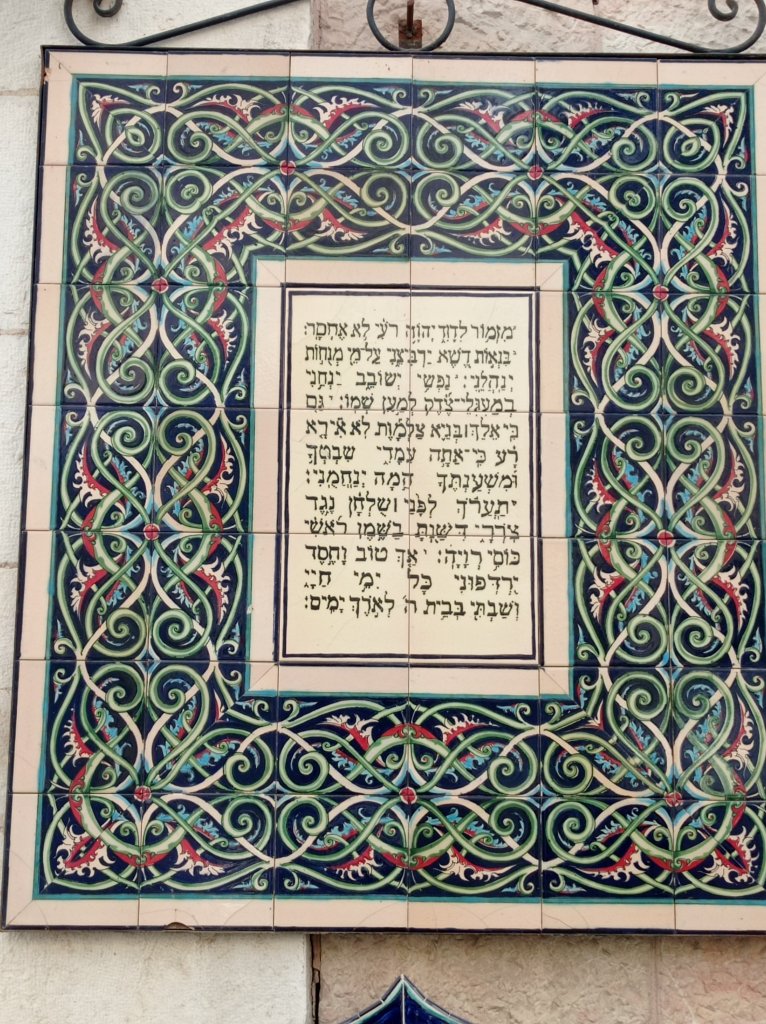 מִזְמוֹר לְדָוִד יְהוָה רֹעִי לֹא אֶחְסָר:
בִּנְאוֹת דֶּשֶׁא יַרְבִּיצֵנִי עַל־מֵי מְנֻחוֹת
יְנַהֲלֵנִי: נַפְשִׁי יְשׁוֹבֵב יַנְחֵנִי
בְמַעְגְּלֵי־צֶדֶק לְמַעַן שְׁמוֹ: גַּם
כִּי אֵלֵךְ בְּגֵיא צַלְמָוֶת לֹא אִירָא
רָע כִּי־אַתָּה עִמָּדִי שִׁבְטְךָ
וּמִשְׁעַנְתֶּךָ הֵמָּה יְנַחֲמֻנִי:
תַּעֲרֹךְ לְפָנַי שֻׁלְחָן נֶגֶד
צֹרְרָי דִּשַּׁנְתָּ בַשֶּׁמֶן רֹאשִׁי
כּוֹסִי רְוָיָה: אַךְ טוֹב וָחֶסֶד
יִרְדְּפוּנִי כָּל יְמֵי חַיָּי
וְשַׁבְתִּי בְּבֵית ה' לְאֹרֶךְ יָמִים: